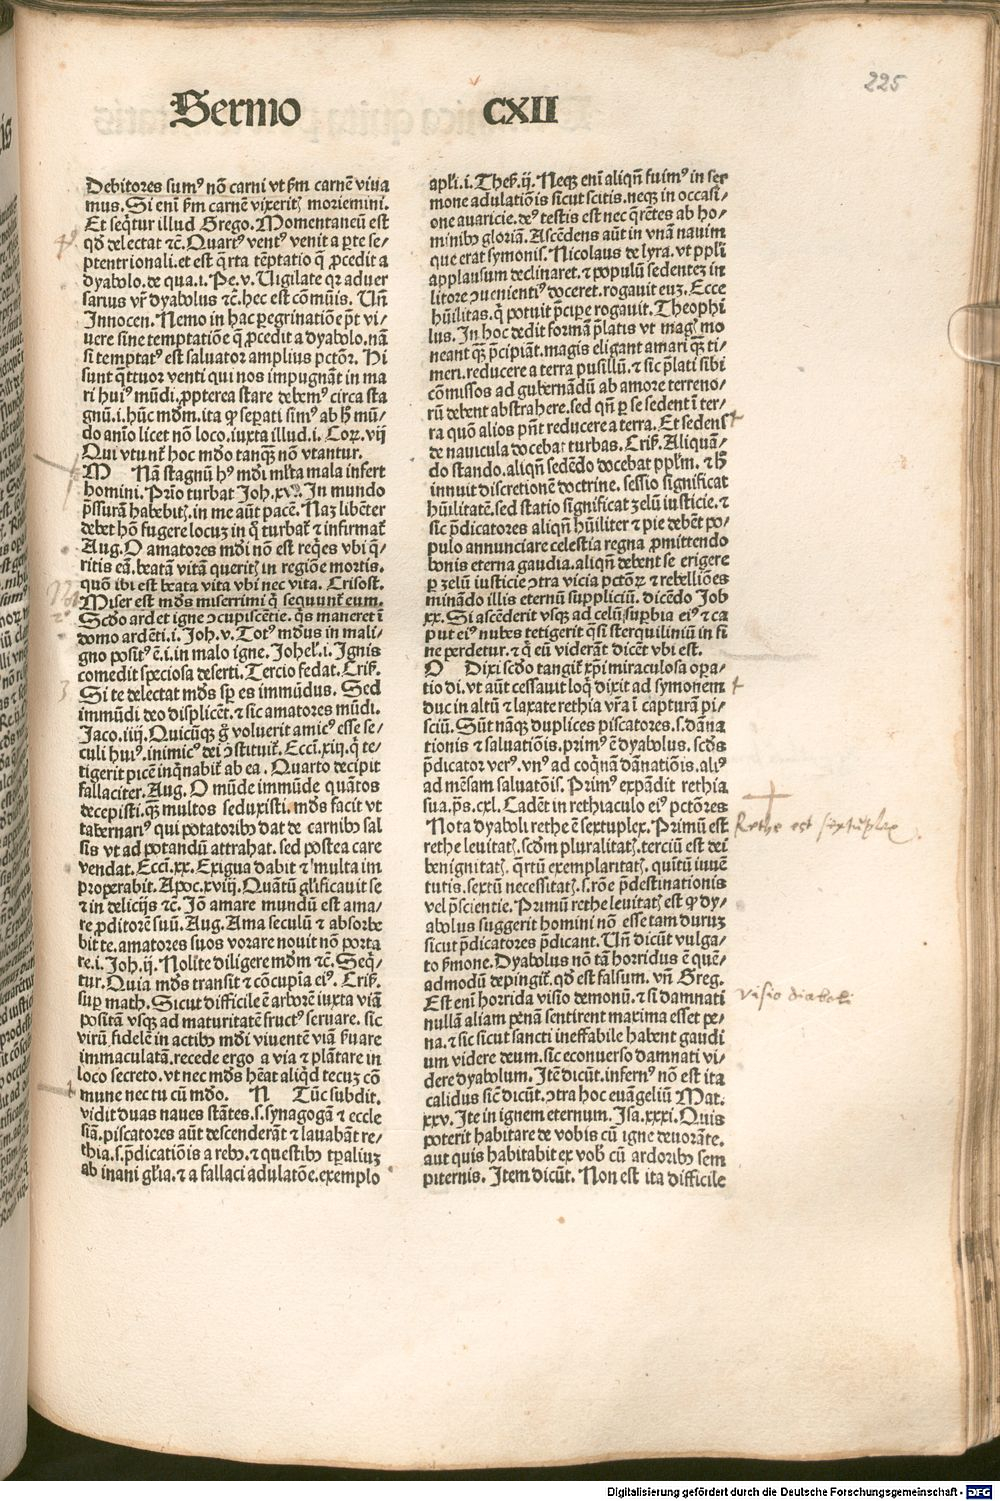 225
Sermo CXII
Debitores sumꝰ nõ carni vt ẜm carnẽ viua
mus. Si enĩ ẜm carnẽ vixeritꝭ moriemini.
Et seq̃tur illud Grego. Momentaneũ est
qđ delectat ⁊c̃. Quartꝰ ventꝰ venit a ꝑte se⸗
ptentrionali. et est q̃rta tẽptatio q̃ ꝓcedit a
dyabolo. de qua .i. Pe. v. Uigilate qꝛ aduer
sarius vr̃ dyabolus ⁊c̃. hec est cõmũis. Uñ
Innocen. Nemo in hac ꝑegrinatiõe pr̃t vi⸗
uere sine temptatiõe q̃ ꝓcedit a dyabolo. nã
si temptatꝰ est saluator amplius pctõꝛ. Hi
sunt q̃ttuor venti qui nos impugnãt in ma
ri huiꝰ mũdi. ꝓpterea stare debemꝰ circa sta
gnũ. i. hũc mđm. ita ꝙ seꝑati simꝰ ab hͦ mũ⸗
do anĩo licet nõ loco. iuxta illud .i. Coꝛ. vij
Qui vtunt̃ hoc mđo tanqꝫ nõ vtantur.
M Nã stagnũ hꝰ mđi ml̃ta mala infert
homini. Prĩo turbat Joh. xv. In mundo
p̃ssurã habebitꝭ. in me aũt pacẽ. Naꝫ libẽter
debet hõ fugere locuꝫ in q̃ turbat̃ ⁊ infirmat̃
Aug. O amatores mđi nõ est req̃es vbi q̃⸗
ritis eã. beatã vitã queritꝭ in regiõe mortis.
quõ ibi est beata vita vbi nec vita. Crisost.
Miser est mđs miserrimi q̃ sequunt̃ eum.
Scđo ardet igne ꝯcupiscẽtie. q̃s maneret ĩ
domo ardẽti .i. Joh. v. Totꝰ mđus in mali⸗
gno positꝰ ẽ. i. in malo igne. Johel̃. i. Ignis
comedit speciosa deserti. Tercio fedat. Criẜ.
Si te delectat mđs sꝑ es immũdus. Sed
immũdi deo displicẽt. ⁊ sic amatores mũdi.
Jaco. iiij. Quicũqꝫ g̃ voluerit amicꝰ esse se⸗
culi huiꝰ. inimicꝰ dei ꝯstituit̃. Ecci̾. xiij. q̃ te⸗
tigerit picẽ inq̃nabit̃ ab ea. Quarto decipit
fallaciter. Aug. O mũde immũde quãtos
decepisti. qꝫ multos seduxisti. mđs facit vt
tabernariꝰ qui potatoribꝰ dat de carnibꝰ sal
sis vt ad potandũ attrahat. sed postea care
vendat. Ecci̾. xx. Exigua dabit ⁊ multa im
properabit. Apoc. xviij. Quãtũ gl̃ificauit se
⁊ in delicijs ⁊c̃. Jõ amare mundũ est ama⸗
re ꝓditorẽ suũ. Aug. Ama seculũ ⁊ absorbe
bit te. amatores suos vorare nouit nõ porta
re. i. Joh. ij. Nolite diligere mđm ⁊c̃. Seq̃⸗
tur. Quia mđs transit ⁊ cõcupĩa eiꝰ. Criẜ.
suꝑ math. Sicut difficile ẽ arborẽ iuxta viã
positã vsqꝫ ad maturitatẽ fructꝰ seruare. sic
virũ fidelẽ in actibꝰ mđi viuentẽ viã ẜuare
immaculatã. recede ergo a via ⁊ plãtare in
loco secreto. vt nec mđs hẽat aliq̃d tecuꝫ cõ
mune nec tu cũ mđo. N Tũc subdit.
vidit duas naues stãtes. s. synagogã ⁊ eccle
siã. piscatores aũt descenderãt ⁊ lauabãt re⸗
thia. s. p̃dicatiõis a rebꝰ. ⁊ questibꝰ tꝑaliuꝫ
ab inani gl̃ia. ⁊ a fallaci adulatõe. exemplo
apl̃i. i. Theẜ. ij. Neqꝫ enĩ aliqñ fuimꝰ in ser
mone adulatiõis sicut scitis. neqꝫ in occasi⸗
one auaricie. deꝰ testis est nec q̃rẽtes ab ho⸗
minibꝰ gloriã. Ascẽdens aũt in vnã nauim
que erat symonis. Nicolaus de lyra. vt ppl̃i
applausum declinaret. ⁊ populũ sedenteꝫ in
litore ꝯuenientiꝰ doceret. rogauit euꝫ. Ecce
hũilitas. q̃ potuit p̃cipe rogauit. Theophi
lus. In hoc dedit formã p̃latis vt magꝭ mo
neant qꝫ p̃cipiãt. magis eligant amari qꝫ ti⸗
meri. reducere a terra pusillũ. ⁊ sic p̃lati sibi
cõmissos ad gubernãdũ ab amore terreno⸗
rũ debent abstrahere. sed qñ ꝑ se sedent ĩ ter⸗
ra quõ alios pñt reducere a terra. Et sedens
de nauicula docebat turbas. Criẜ. Aliquã⸗
do stando. aliqñ sedẽdo docebat ppl̃m. ⁊ hͦ
innuit discretionẽ doctrine. sessio significat
hũilitatẽ. sed statio significat zelũ iusticie. ⁊
sic p̃dicatores aliqñ hũiliter ⁊ pie debẽt po⸗
pulo annunciare celestia regna ꝓmittendo
bonis eterna gaudia. aliqñ debent se erigere
ꝑ zelũ iusticie ꝯtra vicia pctõꝝ ⁊ rebelliões
minãdo illis eternũ suppliciũ. dicẽdo Job
xx. Si ascẽderit vsqꝫ ad celũ suꝑbia eiꝰ ⁊ ca
put eiꝰ nubes tetigerit q̃si sterquiliniũ in fi
ne perdetur. ⁊ q̃ eũ viderãt dicẽt vbi est.
O Dixi scđo tangit̃ xp̃i miraculosa oꝑa⸗
tio di. vt aũt cessauit loq̃ dixit ad symonem
duc in altũ ⁊ laxate rethia vr̃a ĩ capturã pi⸗
sciũ. Sũt nãqꝫ duplices piscatores. s. dãna
tionis ⁊ saluatiõis. primꝰ ẽ dyabolus. scđs
p̃dicator verꝰ. vnꝰ ad coq̃nã dãnatiõis. aliꝰ
ad mẽsam saluatõis. Primꝰ expãdit rethia
sua. p̃s. cxl. Cadẽt in rethiaculo eiꝰ pctõres
Nota dyaboli rethe ẽ sextuplex. Primũ est
rethe leuitatꝭ. scđm pluralitatꝭ. terciũ est dei
benignitatꝭ. q̃rtũ exemplaritatꝭ. quĩtũ iuuẽ
tutis. sextũ necessitatꝭ. s. rõe p̃destinationis
vel p̃scientie. Primũ rethe leuitatꝭ est ꝙ dy⸗
abolus suggerit homini nõ esse tam duruꝫ
sicut p̃dicatores p̃dicant. Uñ dicũt vulga⸗
to ẜmone. Dyabolus nõ tã horridus ẽ quẽ⸗
admodũ depingit̃. qđ est falsum. vñ Greg.
Est enĩ horrida visio demonũ. ⁊ si damnati
nullã aliam penã sentirent maxima esset pe⸗
na. ⁊ sic sicut sancti ineffabile habent gaudi
um videre deum. sic econuerso damnati vi⸗
dere dyabolum. Itẽ dicũt. infernꝰ nõ est ita
calidus sic̃ dicũt. ꝯtra hoc euãgeliũ Mat.
xxv. Ite in ignem eternum. Isa. xxxi. Quis
poterit habitare de vobis cũ igne deuorãte.
aut quis habitabit ex vob̾ cũ ardoribꝰ sem
piternis. Item dicũt. Non est ita difficile
Rethe est sextuplex
visio diaboli
Digitalisierung gefördert durch die Deutsche Forschungsgemeinschaft - DFG